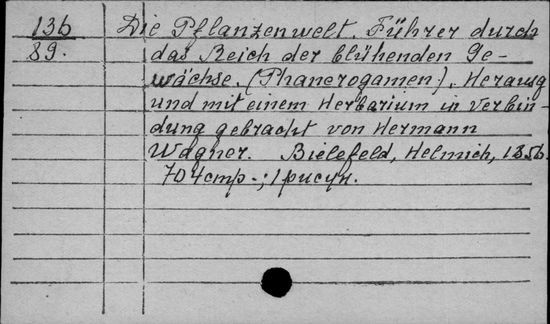 136 Die Pflanzenwelt. Führer durch
89. das Reich der blühenden Ge-
wächse. (Phanerogamen). Herausg
und mit einem Herbarium in Verbin-
dung gebracht von Hermann
Wagner. Bielefeld, Helmich, 1856.
704 стр.; 1 рисун.